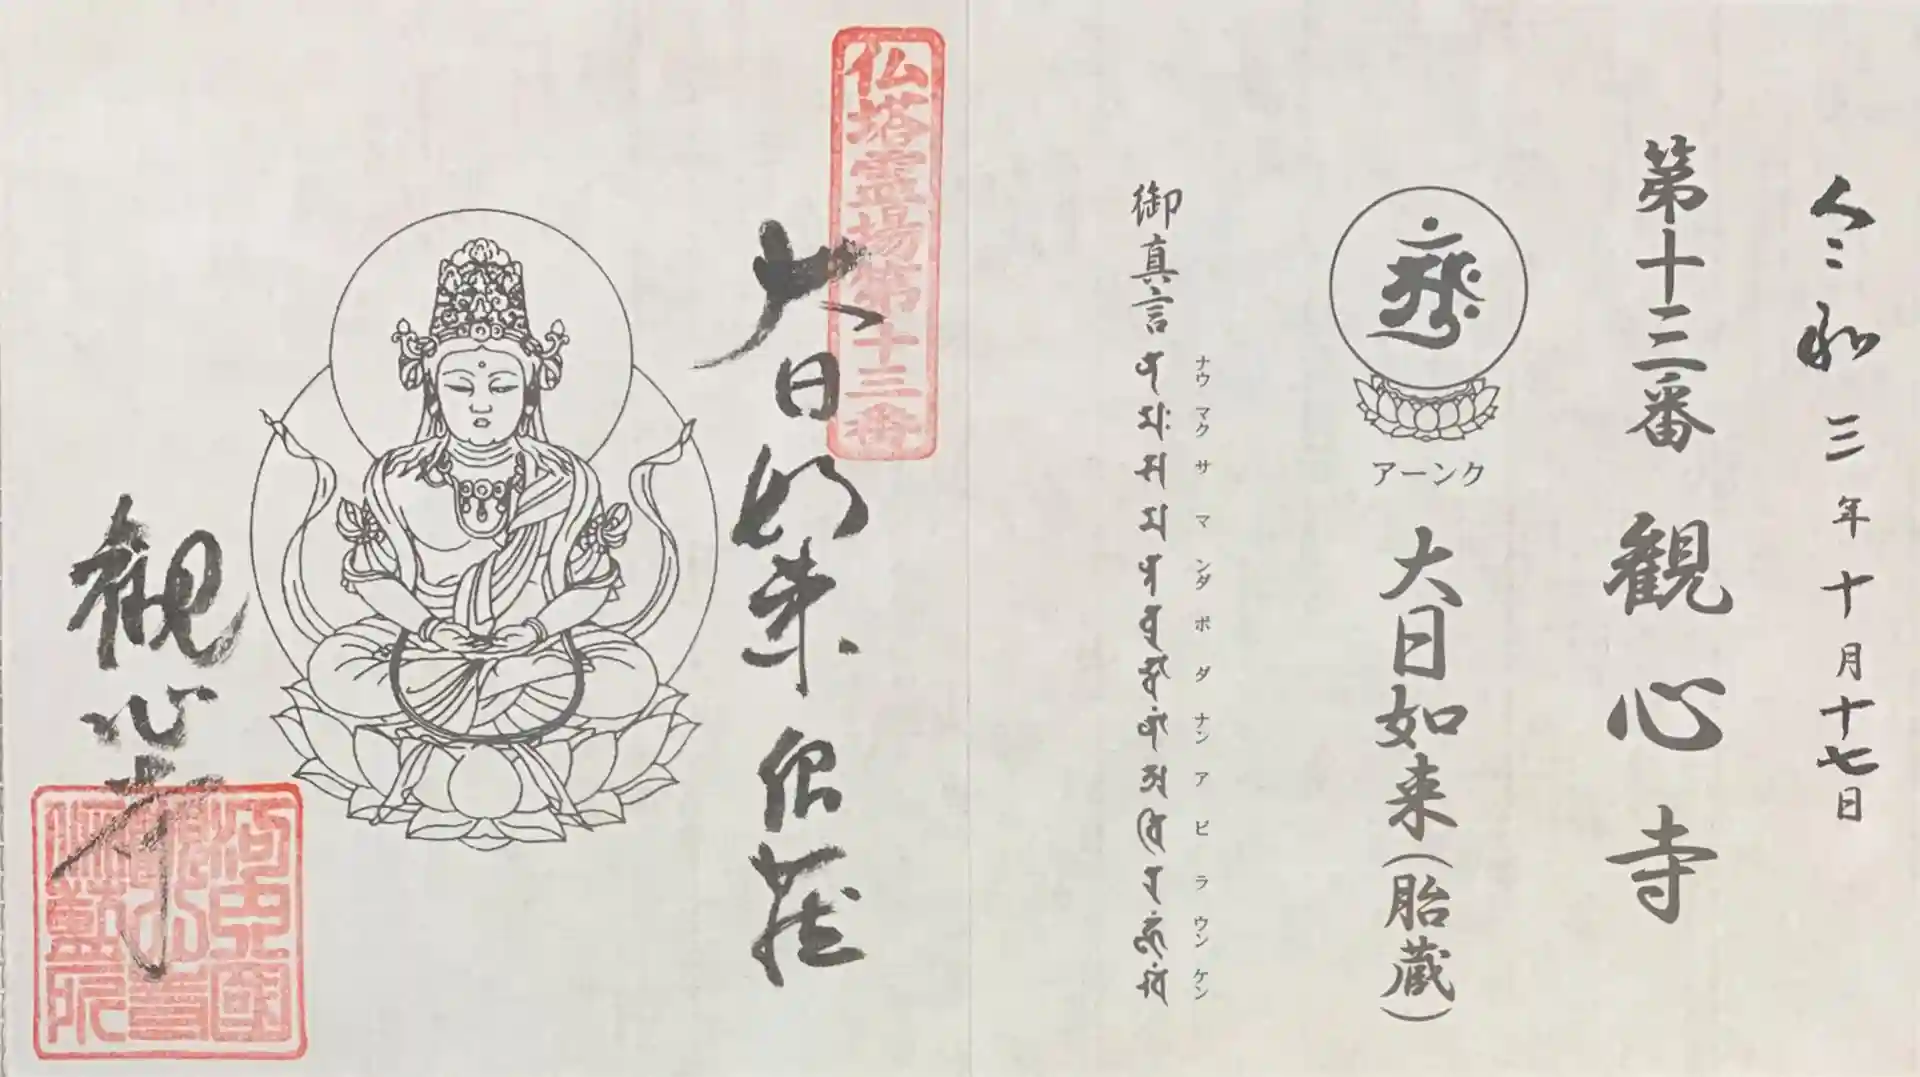 令和三年十月十七日
第十三番 観心寺
アーンク
大日如来(胎蔵)
御真言
ナウマクサマンダボダナンアビラウンケン
仏塔霊場第十三番
大日如来 胎蔵
観心寺